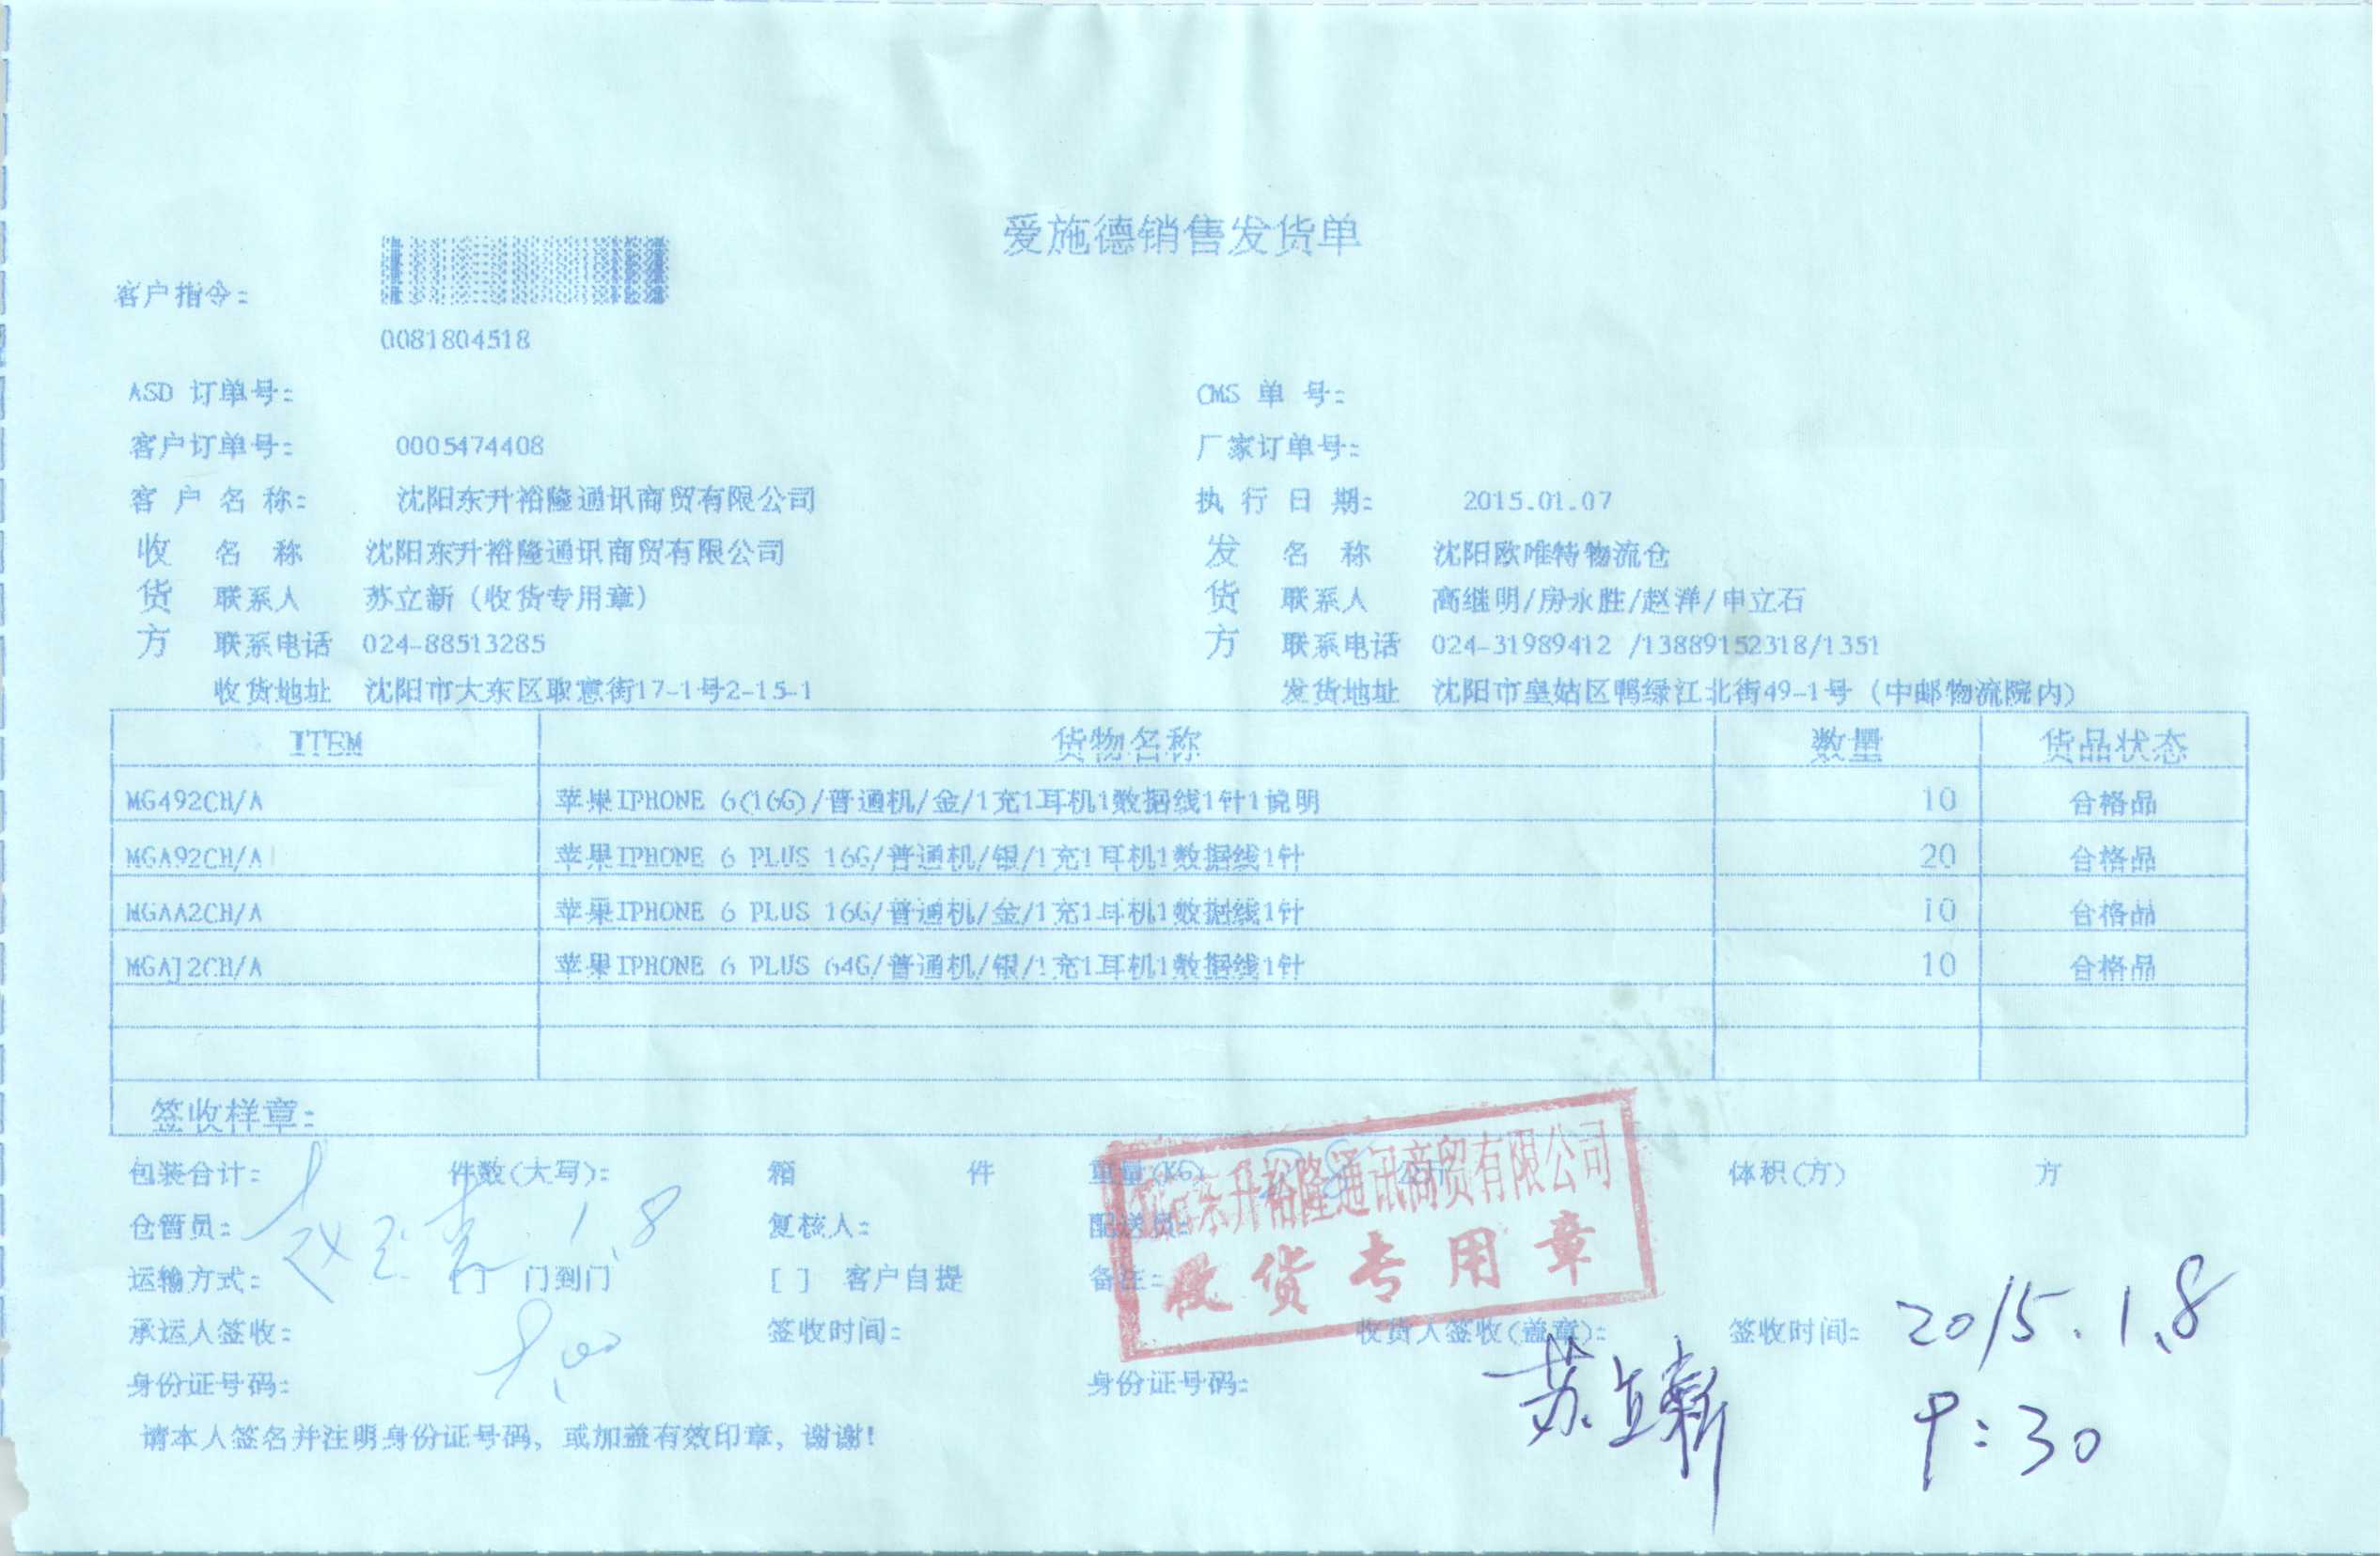 爱施德销售发货单
客户指令：
0081804518
ASD 订单号： CMS 单 号：
客户订单号： 0005474408 厂家订单号：
客 户 名 称： 沈阳东升裕隆通讯商贸有限公司 执 行 日 期： 2015.01.07
收 名 称 沈阳东升裕隆通讯商贸有限公司 发 名 称 沈阳欧唯特物流仓
货 联系人 苏立新（收货专用章） 货 联系人 高继明/房永胜/赵洋/申立石
方 联系电话 024-88513285 方 联系电话 024-31989412 /13889152318/1351
收货地址 沈阳市大东区取意街17-1号2-15-1 发货地址 沈阳市皇姑区鸭绿江北街49-1号（中邮物流院内）
ITEM 货物名称 数量 货品状态
MG492CH/A 苹果IPHONE 6(16G)/普通机/金/1充1耳机1数据线1针1说明 10 合格品
MGA92CH/A 苹果IPHONE 6 PLUS 16G/普通机/银/1充1耳机1数据线1针 20 合格品
MGAA2CH/A 苹果IPHONE 6 PLUS 16G/普通机/金/1充1耳机1数据线1针 10 合格品
MGAJ2CH/A 苹果IPHONE 6 PLUS 64G/普通机/银/1充1耳机1数据线1针 10 合格品
签收样章：
包装合计： 件数(大写)： 箱 件 重量(KG) 公斤 体积(方) 方
东升裕隆通讯商贸有限公司
仓管员： 1.8 复核人： 配送员：
收货专用章
运输方式： [ ] 门到门 [ ] 客户自提 备注：
承运人签收： 签收时间： 收货人签收(盖章)： 签收时间： 2015.1.8
身份证号码： 身份证号码： 苏立新 9:30
请本人签名并注明身份证号码，或加盖有效印章，谢谢！